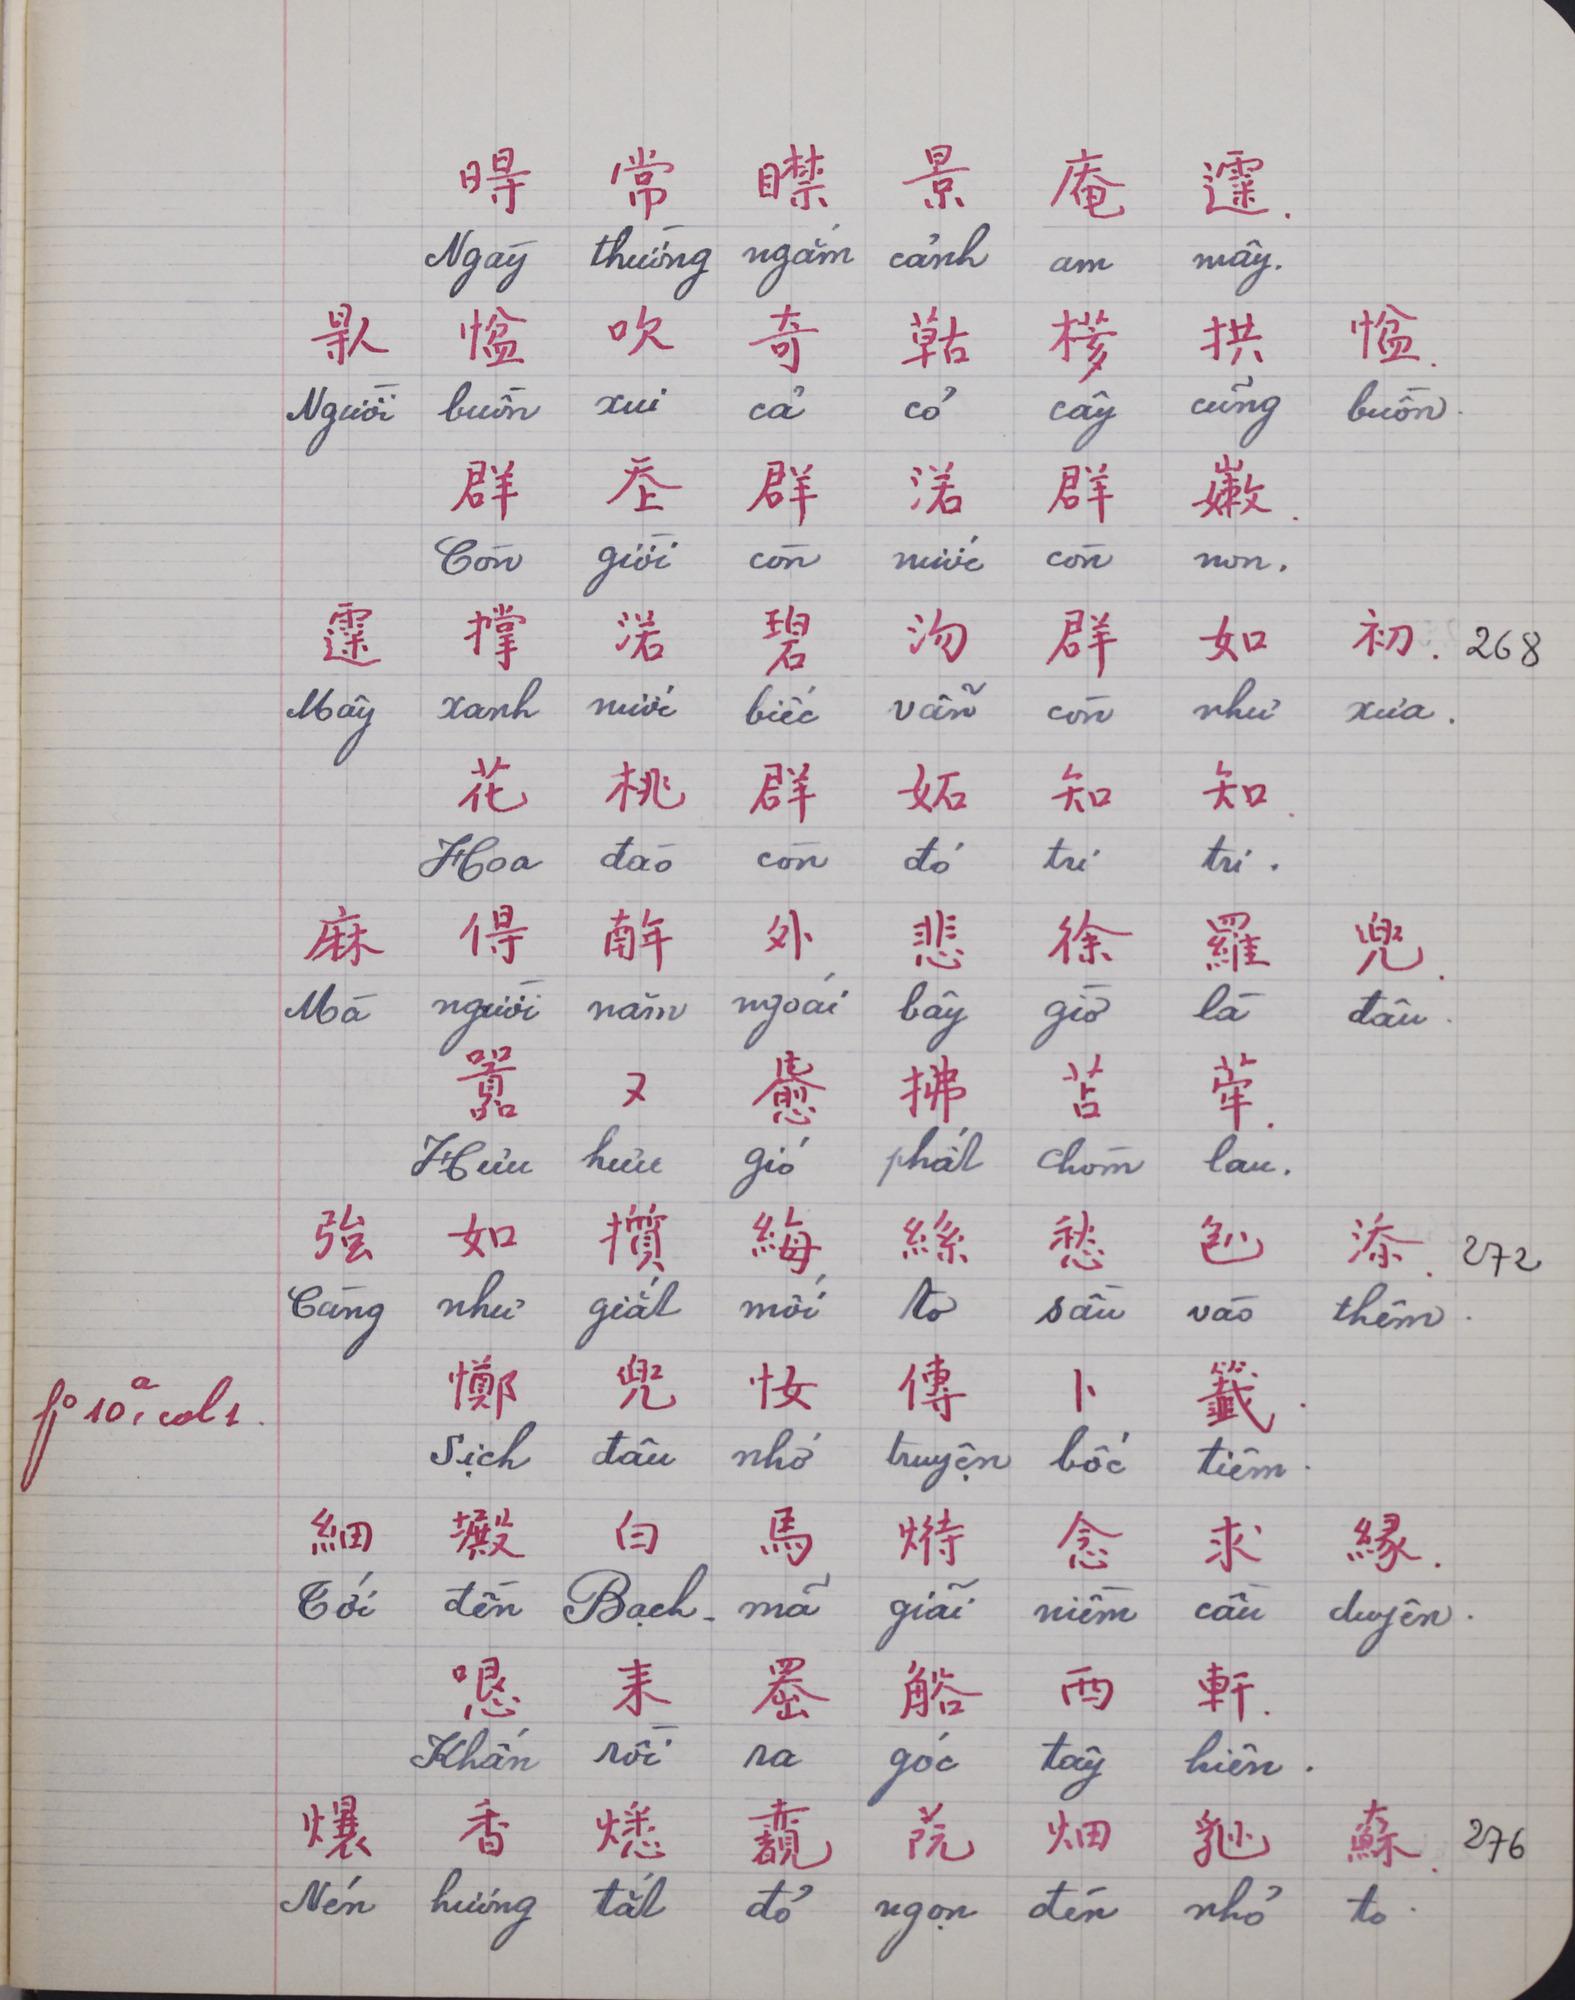 𣈜 常 𥋴 景 庵 𩄲.
Ngày thường ngắm cảnh am mây.
𠊛 㥪 吹 奇 𦹵 𣘃 拱 㥪.
Người buồn xui cả cỏ cây cũng buồn.
群 𡗶 群 渃 群 𡽫.
Còn giời còn nước còn non.
𩄲 撑 渃 碧 沕 群 如 初. 268
Mây xanh nước biếc vẫn còn như xưa.
花 桃 群 妬 知 知.
Hoa đào còn đó tri tri.
麻 得 𢆥 外 悲 徐 羅 兜.
Mà người năm ngoái bây giờ là đâu.
囂 又 𢠐 拂 苫 𦰤.
Hưu hưu gió phất chòm lau.
強 如 攢 䋦 絲 愁 𠓨 添. 272
Càng như giắt mối tơ sầu vào thêm.
fº 10ª, col 1.
擲 兜 𢘾 傳 卜 籤.
Sịch đâu nhớ truyện bốc tiêm.
細 殿 白 馬 𤉒 念 求 緣.
Tới đền Bạch-mã giãi niềm cầu duyên.
㤙 耒 𦋦 𧣳 西 軒.
Khấn rồi ra góc tây hiên.
𤓢 香 熄 𧹼 阮 畑 𡮈 蘇. 276
Nén hương tắt đỏ ngọn đèn nhỏ to.